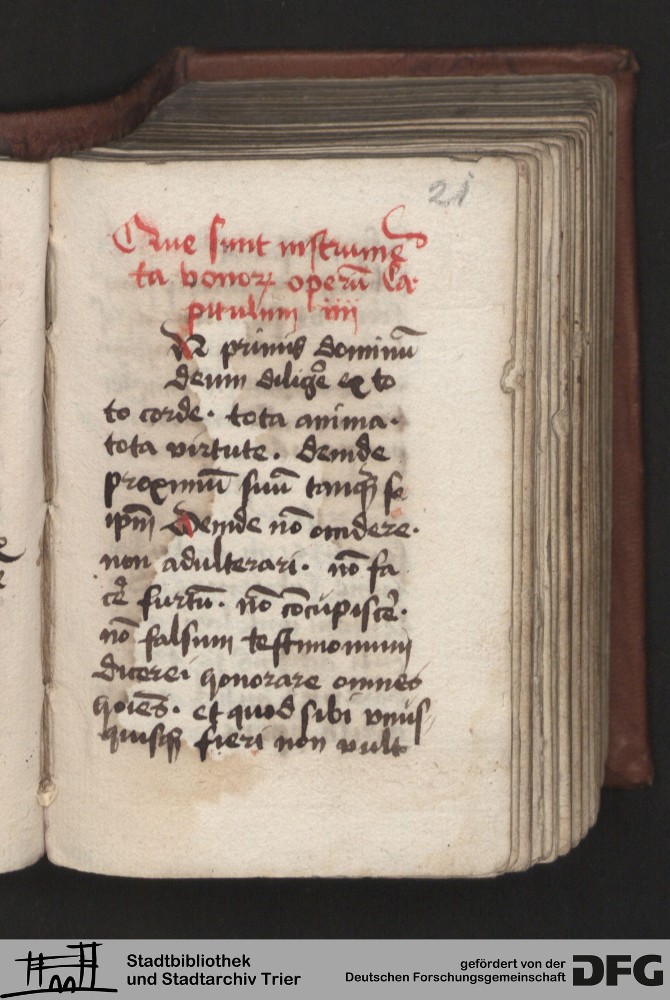 21
Que sunt instrumē
ta bonoꝝ operū Ca
pitulum iiii
IN primis dominū
deum diligēre ex to
to corde· tota anima·
tota virtute· deinde
proximū suū tanqꝫ se
ipm̄ Deinde nō occidere·
non adulterari· nō fa
cēr furtū· nō cōcupiscēr·
nō falsum testimonium
dicere· honorare omnes
hoīēs· et quod sibi vnus
quisqꝫ fieri non vult
Stadtbibliothek
und Stadtarchiv Trier
gefördert von der
Deutschen Forschungsgemeinschaft
DFG